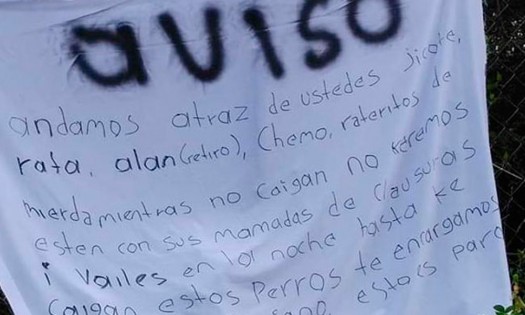 aviso
andamos atraz de ustedes jicote,
rata, alan(retiro), Chemo, rateritos de
mierdamientras no caigan no keremos
esten con sus mamadas de clausuras
i vailes en la noche hasta ke
caigan estos perros te encargamos
estoes para